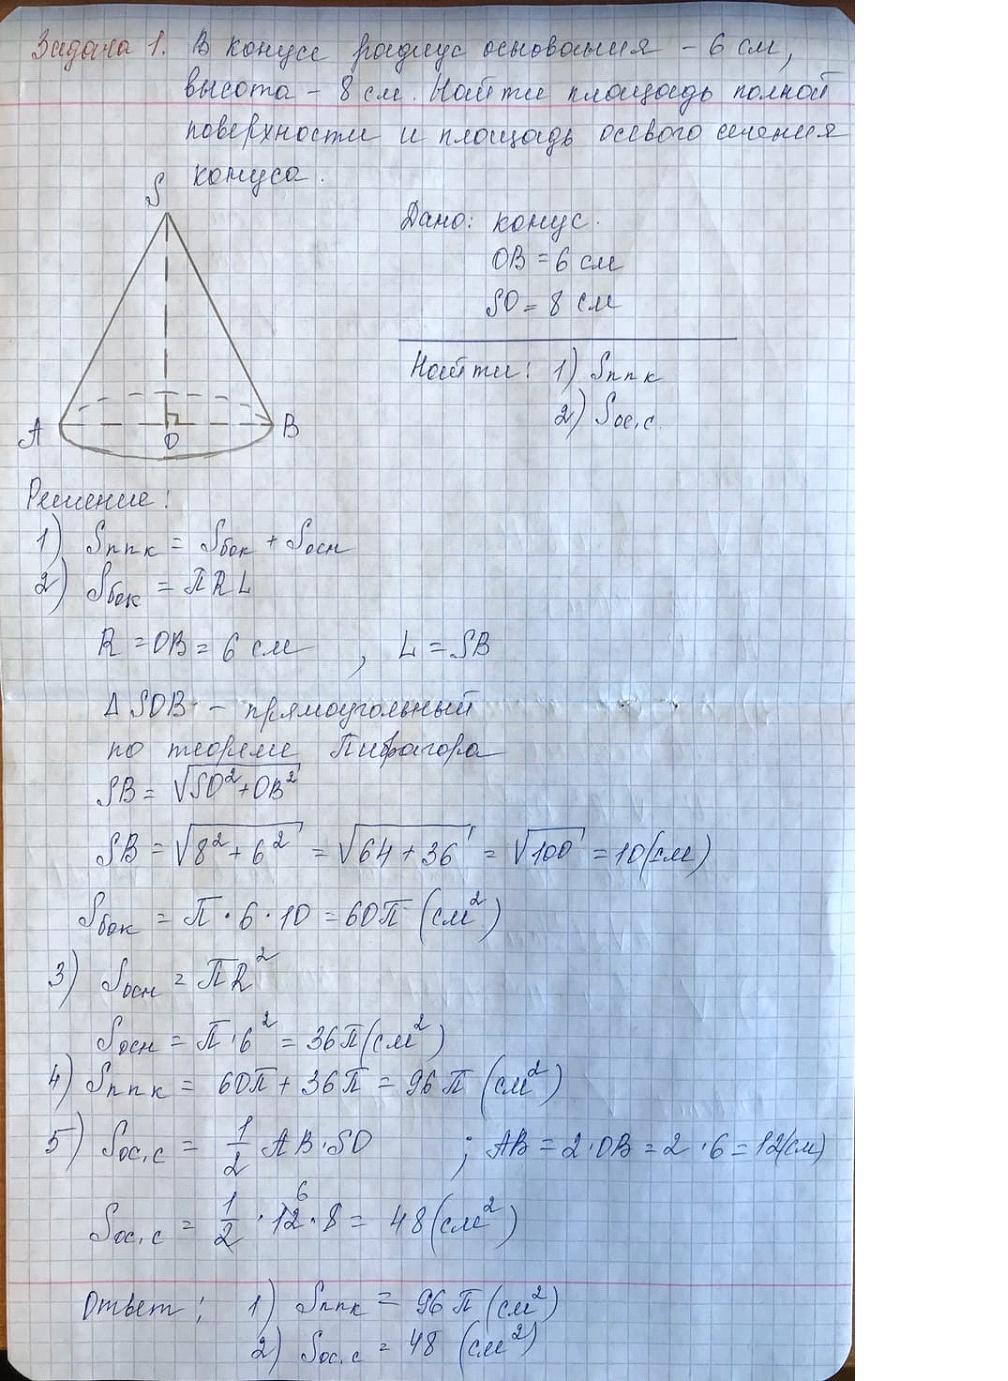 Задача 1. В конусе радиус основания – 6 см,
высота – 8 см. Найти площадь полной
поверхности и площадь осевого сечения
конуса.
S
A
O
B
Дано: конус.
OB = 6 см
SO = 8 см
Найти: 1) Sппк
2) Sос.с.
Решение:
1) Sппк = Sбок + Sосн
2) Sбок = πRL
R = OB = 6 см , L = SB
Δ SOB – прямоугольный
по теореме Пифагора
SB = √(SO² + OB²)
SB = √(8² + 6²) = √(64 + 36) = √100 = 10(см)
Sбок = π · 6 · 10 = 60π (см²)
3) Sосн = πR²
Sосн = π · 6² = 36π(см²)
4) Sппк = 60π + 36π = 96π (см²)
5) Sос.с = 1/2 AB · SO ; AB = 2 · OB = 2 · 6 = 12(см)
6
Sос.с = 1/2 · 12 · 8 = 48(см²)
Ответ: 1) Sппк = 96π(см²)
2) Sос.с = 48 (см²)